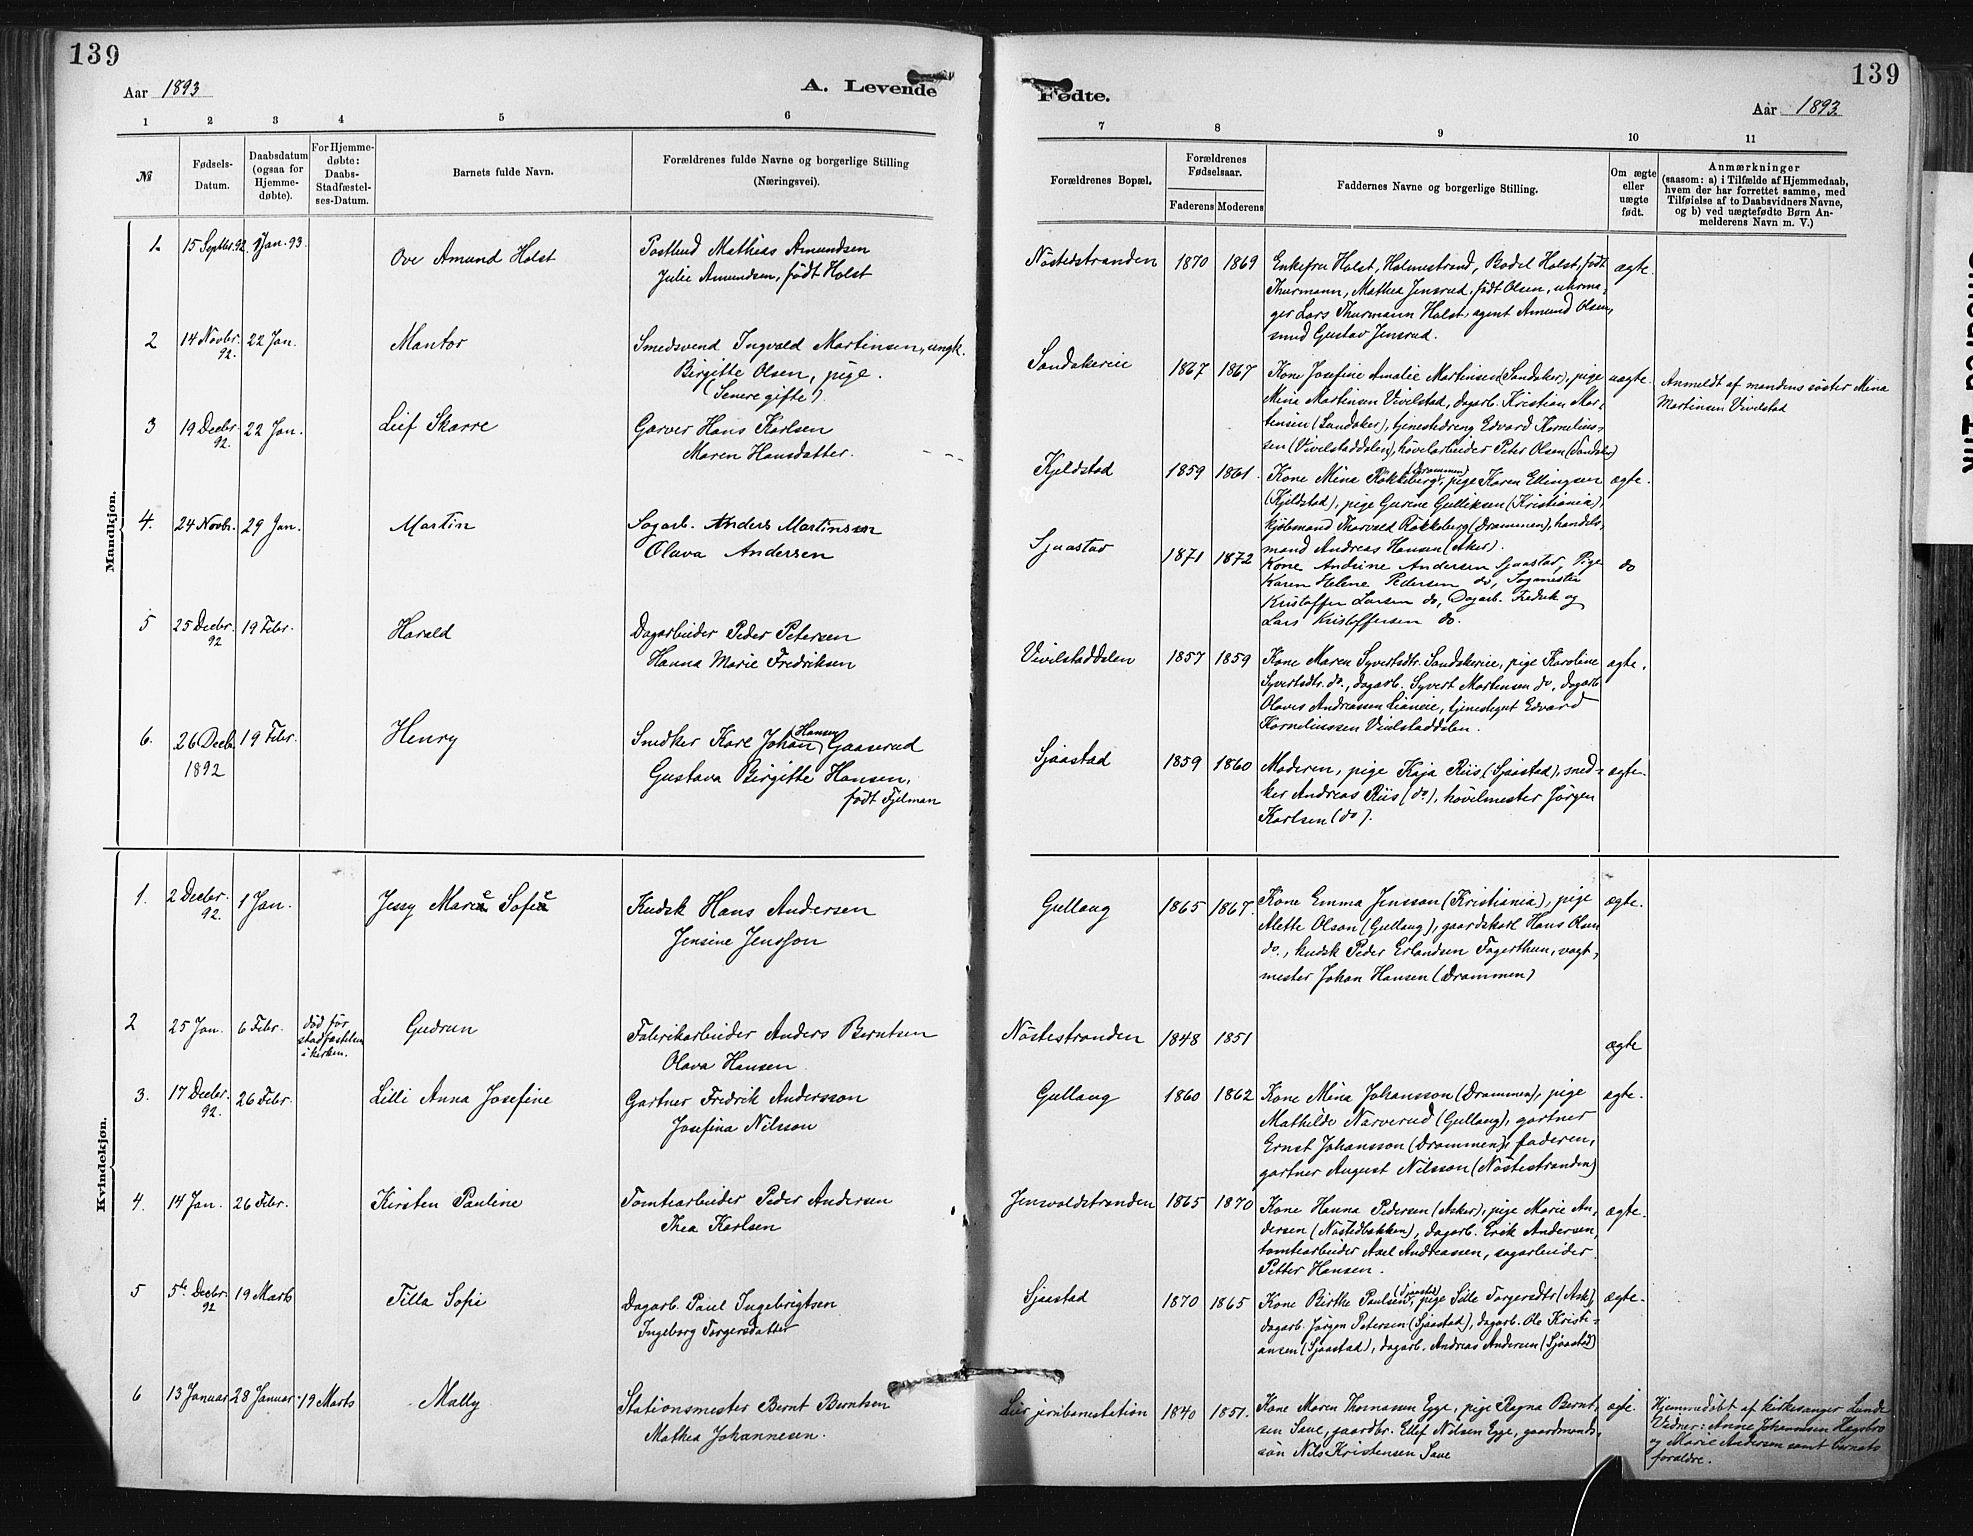 139
Aar 1893
A. Levende
1 2 3 4 5 6
№
Fødsels-Datum.
Daabsdatum (ogsaa for Hjemme-døbte).
For Hjemme-døbte: Daabs-Stadfæstel-ses-Datum.
Barnets fulde Navn.
Forældrenes fulde Navne og borgerlige Stilling (Næringsvei).
Mandkjøn.
1. 15 Septbr. 92. 1 Jan. 93. Ove Amund Holst
Postbud Mathias Amundsen
Julie Amundsen, født Holst
2 14 Novbr. 92. 22 Jan. Mantor
Smedsvend Ingvald Martinsen, ungk.
Birgitte Olsen, pige.
(Senere gifte).
3 19 Decbr. 92. 22 Jan. Leif Skarre
Garver Hans Karlsen
Maren Hansdatter.
4. 24 Novbr. 29 Jan. Martin
Sagarb. Anders Martinsen
Olava Andersen
5 25 Decbr. 92 19 Febr. Harald
Dagarbeider Peder Petersen
Hanna Marie Fredriksen
6. 26 Decb. 1892 19 Febr. Henry
Snedker Karl Johan (Hansen) Gaaserud
Gustava Birgitte Hansen,
født Fjelman
Kvindekjøn.
1. 2 Decbr. 92. 1 Jan. Jessy Marie Sofie
Kudsk Hans Andersen
Jensine Jensson
2 25 Jan. 6 Febr. død før stadfæstelsen i kirken. Gudrun
Fabrikarbeider Anders Berntsen
Olava Hansen
3. 17 Decbr. 92. 26 Febr. Lilli Anna Josefine
Gartner Fredrik Andersson
Josefina Nilsson
4. 14 Jan. 26 Febr. Kirsten Pauline
Tomtearbeider Peder Andersen
Thea Karlsen
5 5te Decbr. 92 19 Marts Tilla Sofie
Dagarb. Paul Ingebrigtsen
Ingeborg Torgersdatter
6 13 Januar 28 Januar 19 Marts Mally
Stationsmester Bernt Berntsen
Mathea Johannesen.
139
Fødte.
Aar 1893.
7 8 9 10 11
Forældrenes Bopæl.
Forældrenes Fødselsaar.
Faderens Moderens
Faddernes Navne og borgerlige Stilling.
Om ægte eller uægte født.
Anmærkninger
(saasom: a) i Tilfælde af Hjemmedaab,
hvem der har forrettet samme, med
Tilføielse af to Daabsvidners Navne,
og b) ved uægtefødte Børn An-
melderens Navn m. V.)
Nøstedstranden 1870 1869 Enkefru Holst, Holmestrand, Bodel Holst, født ægte.
Thurmann, Mathea Jensrud, født Olsen, uhrma-
ger Lars Thurmann Holst, agent Amund Olsen,
smed Gustav Jensrud.
Sandakereie 1867 1867 Kone Josefine Amalie Martinsen (Sandaker), pige uægte. Anmeldt af mandens søster Mina
Mina Martinsen Vivelstad, dagarb. Kristian Mar- Martinsen Vivelstad
tinsen (Sandaker), tjenestedreng Edvard Kornelius-
sen (Vivelstaddalen), høvelarbeider Peter Olsen (Sandaker)
Kjeldstad 1859 1861. Kone Mina Røkkeberg (Drammen), pige Karen Ellingsen ægte.
(Kjeldstad), pige Gurine Gulliksen (Kristiania),
kjøbmand Thorvald Røkkeberg (Drammen), handels-
mand Andreas Hansen (Asker).
Sjaastad 1871 1872 Kone Andrine Andersen Sjaastad, Pige do
Karen Helene Pedersen do, Sagmester
Kristoffer Larsen do, Dagarb. Fredrik og
Lars Kristoffersen do.
Vivelstaddalen 1857 1859 Kone Maren Syvertsdtr. Sandakereie, pige Karoline ægte.
Syvertsdtr. do., dagarb. Syvert Mortensen do, dagarb.
Olaves Andreassen Lianeie, tjenestegut Edvard
Korneliussen Vivelstaddalen.
Sjaastad 1859 1860 Moderen, pige Kaja Riis (Sjaastad), sned- ægte.
ker Andreas Riis (do), høvelmester Jørgen
Karlsen (do).
Gullaug 1865 1867. Kone Emma Jensson (Kristiania), pige ægte.
Alette Olson (Gullaug), gaardskarl Hans Olsen
do., kudsk Peder Erlandsen Fagerthun, vagt-
mester Johan Hansen (Drammen)
Nøstestranden 1848 1851 ægte
Gullaug 1860 1862 Kone Mina Johansson (Drammen), pige ægte.
Mathilde Narverud (Gullaug), gartner
Ernst Johansson (Drammen), faderen,
gartner August Nilsson (Nøstestranden)
Jensvoldstranden 1865 1870 Kone Hanna Pedersen (Asker), pige Marie An- ægte.
dersen (Nøstedbakken), dagarb. Erik Andersen,
tomtearbeider Axel Andreassen, sagarbeider
Petter Hansen.
Sjaastad 1870 1865 Kone Birthe Paulsen (Sjaastad), pige Sille Torgersdtr (Ask), ægte.
dagarb. Jørgen Petersen (Sjaastad), dagarb. Ole Kristi-
ansen (Sjaastad), dagarb. Andreas Andersen (Sjaastad)
Lier jernbanestation 1840 1851. Kone Maren Thomasen Egge, pige Ragna Bernt- ægte. Hjemmedøbt af kirkesanger Lunde
sen Save, gaardbr. Ellef Nilsen Egge, gaardmands- Vidner: Anne Johannesen Hagebro
søn Nils Kristensen Save og Marie Andersen samt barnets
forældre.